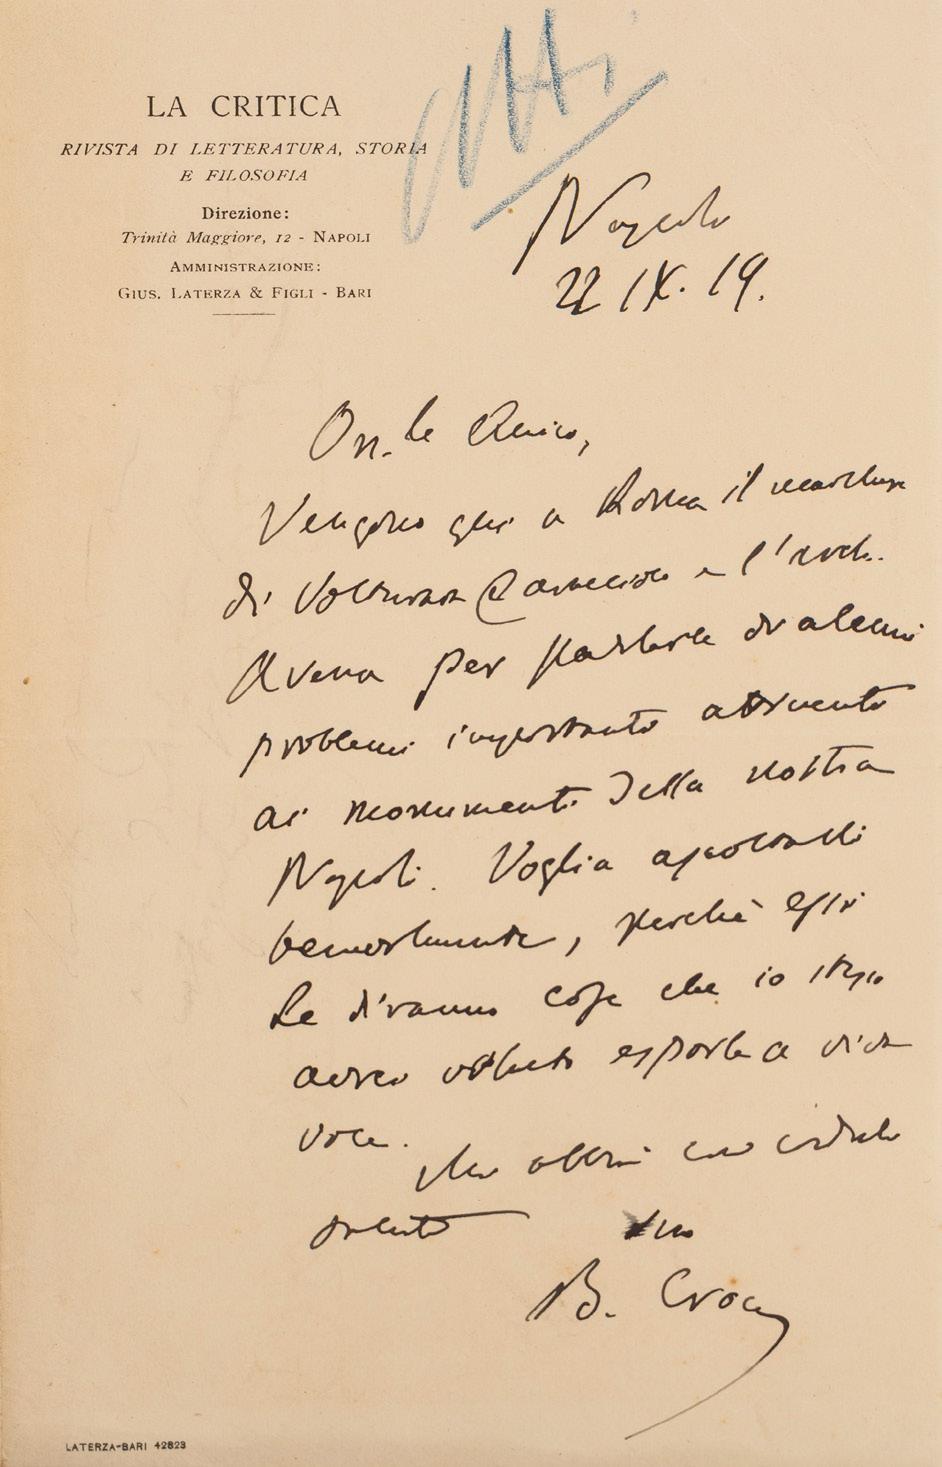 Atti
LA CRITICA
RIVISTA DI LETTERATURA, STORIA
E FILOSOFIA
Direzione:
Trinità Maggiore, 12 - NAPOLI
AMMINISTRAZIONE:
GIUS. LATERZA & FIGLI - BARI
Napoli
22 IX. 19.
On.le Amico,
Vengono qui a Roma il marchese
di Caracciolo e l'arch.
Avena per parlarle di alcuni
problemi importanti attinenti
ai monumenti della nostra
Napoli. Voglia ascoltarli
benevolmente, perchè essi
Le diranno cose che io stesso
avrei voluto esporle a viva
voce.
Mi abbia con cordiali
saluti suo
B. Croce
LATERZA-BARI 42823